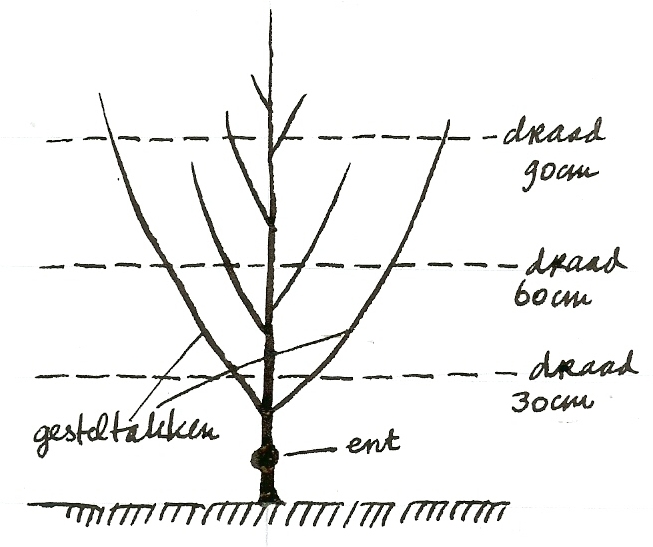 draad
90cm
draad
60cm
draad
30cm
gesteltakken
ent